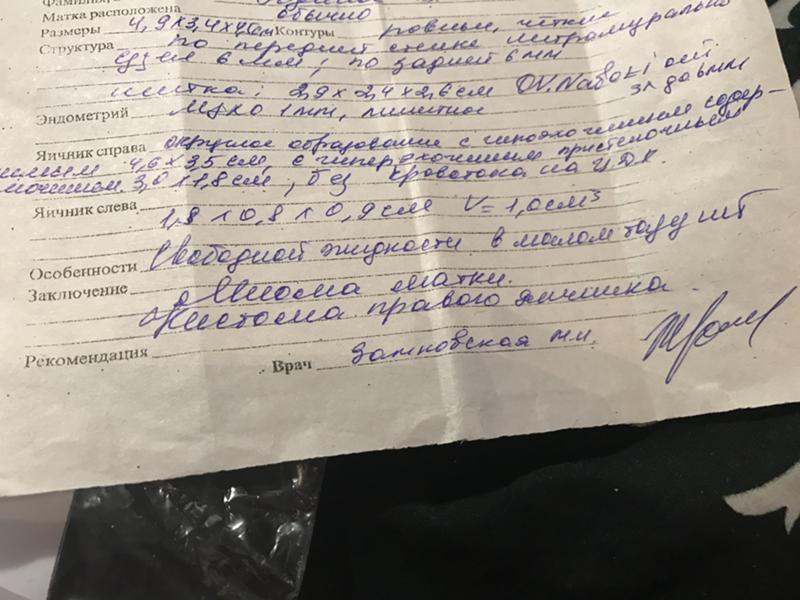 Матка расположена обычно
Размеры 4,9х3,4х4см Контуры ровные, четкие
Структура по передней стенке интрамурально
узел 6 мм, по задней 6 мм
шейка: 2,9 х 2,4 х 2,6 см OV. Naboti
Эндометрий м-эхо 1 мм, линейное
Яичник справа округлое образование с гипоэхогенным содер-
4,6 х 3,5 см, с гиперэхогенным пристеночным
3,0 х 1,8 см, без кровотока на ЦДК.
Яичник слева 1,8 х 0,8 х 0,9 см V= 1,0 см³
Особенности Свободной жидкости в малом тазу нет
Заключение Миома матки.
Кистома правого яичника
Рекомендация
Врач